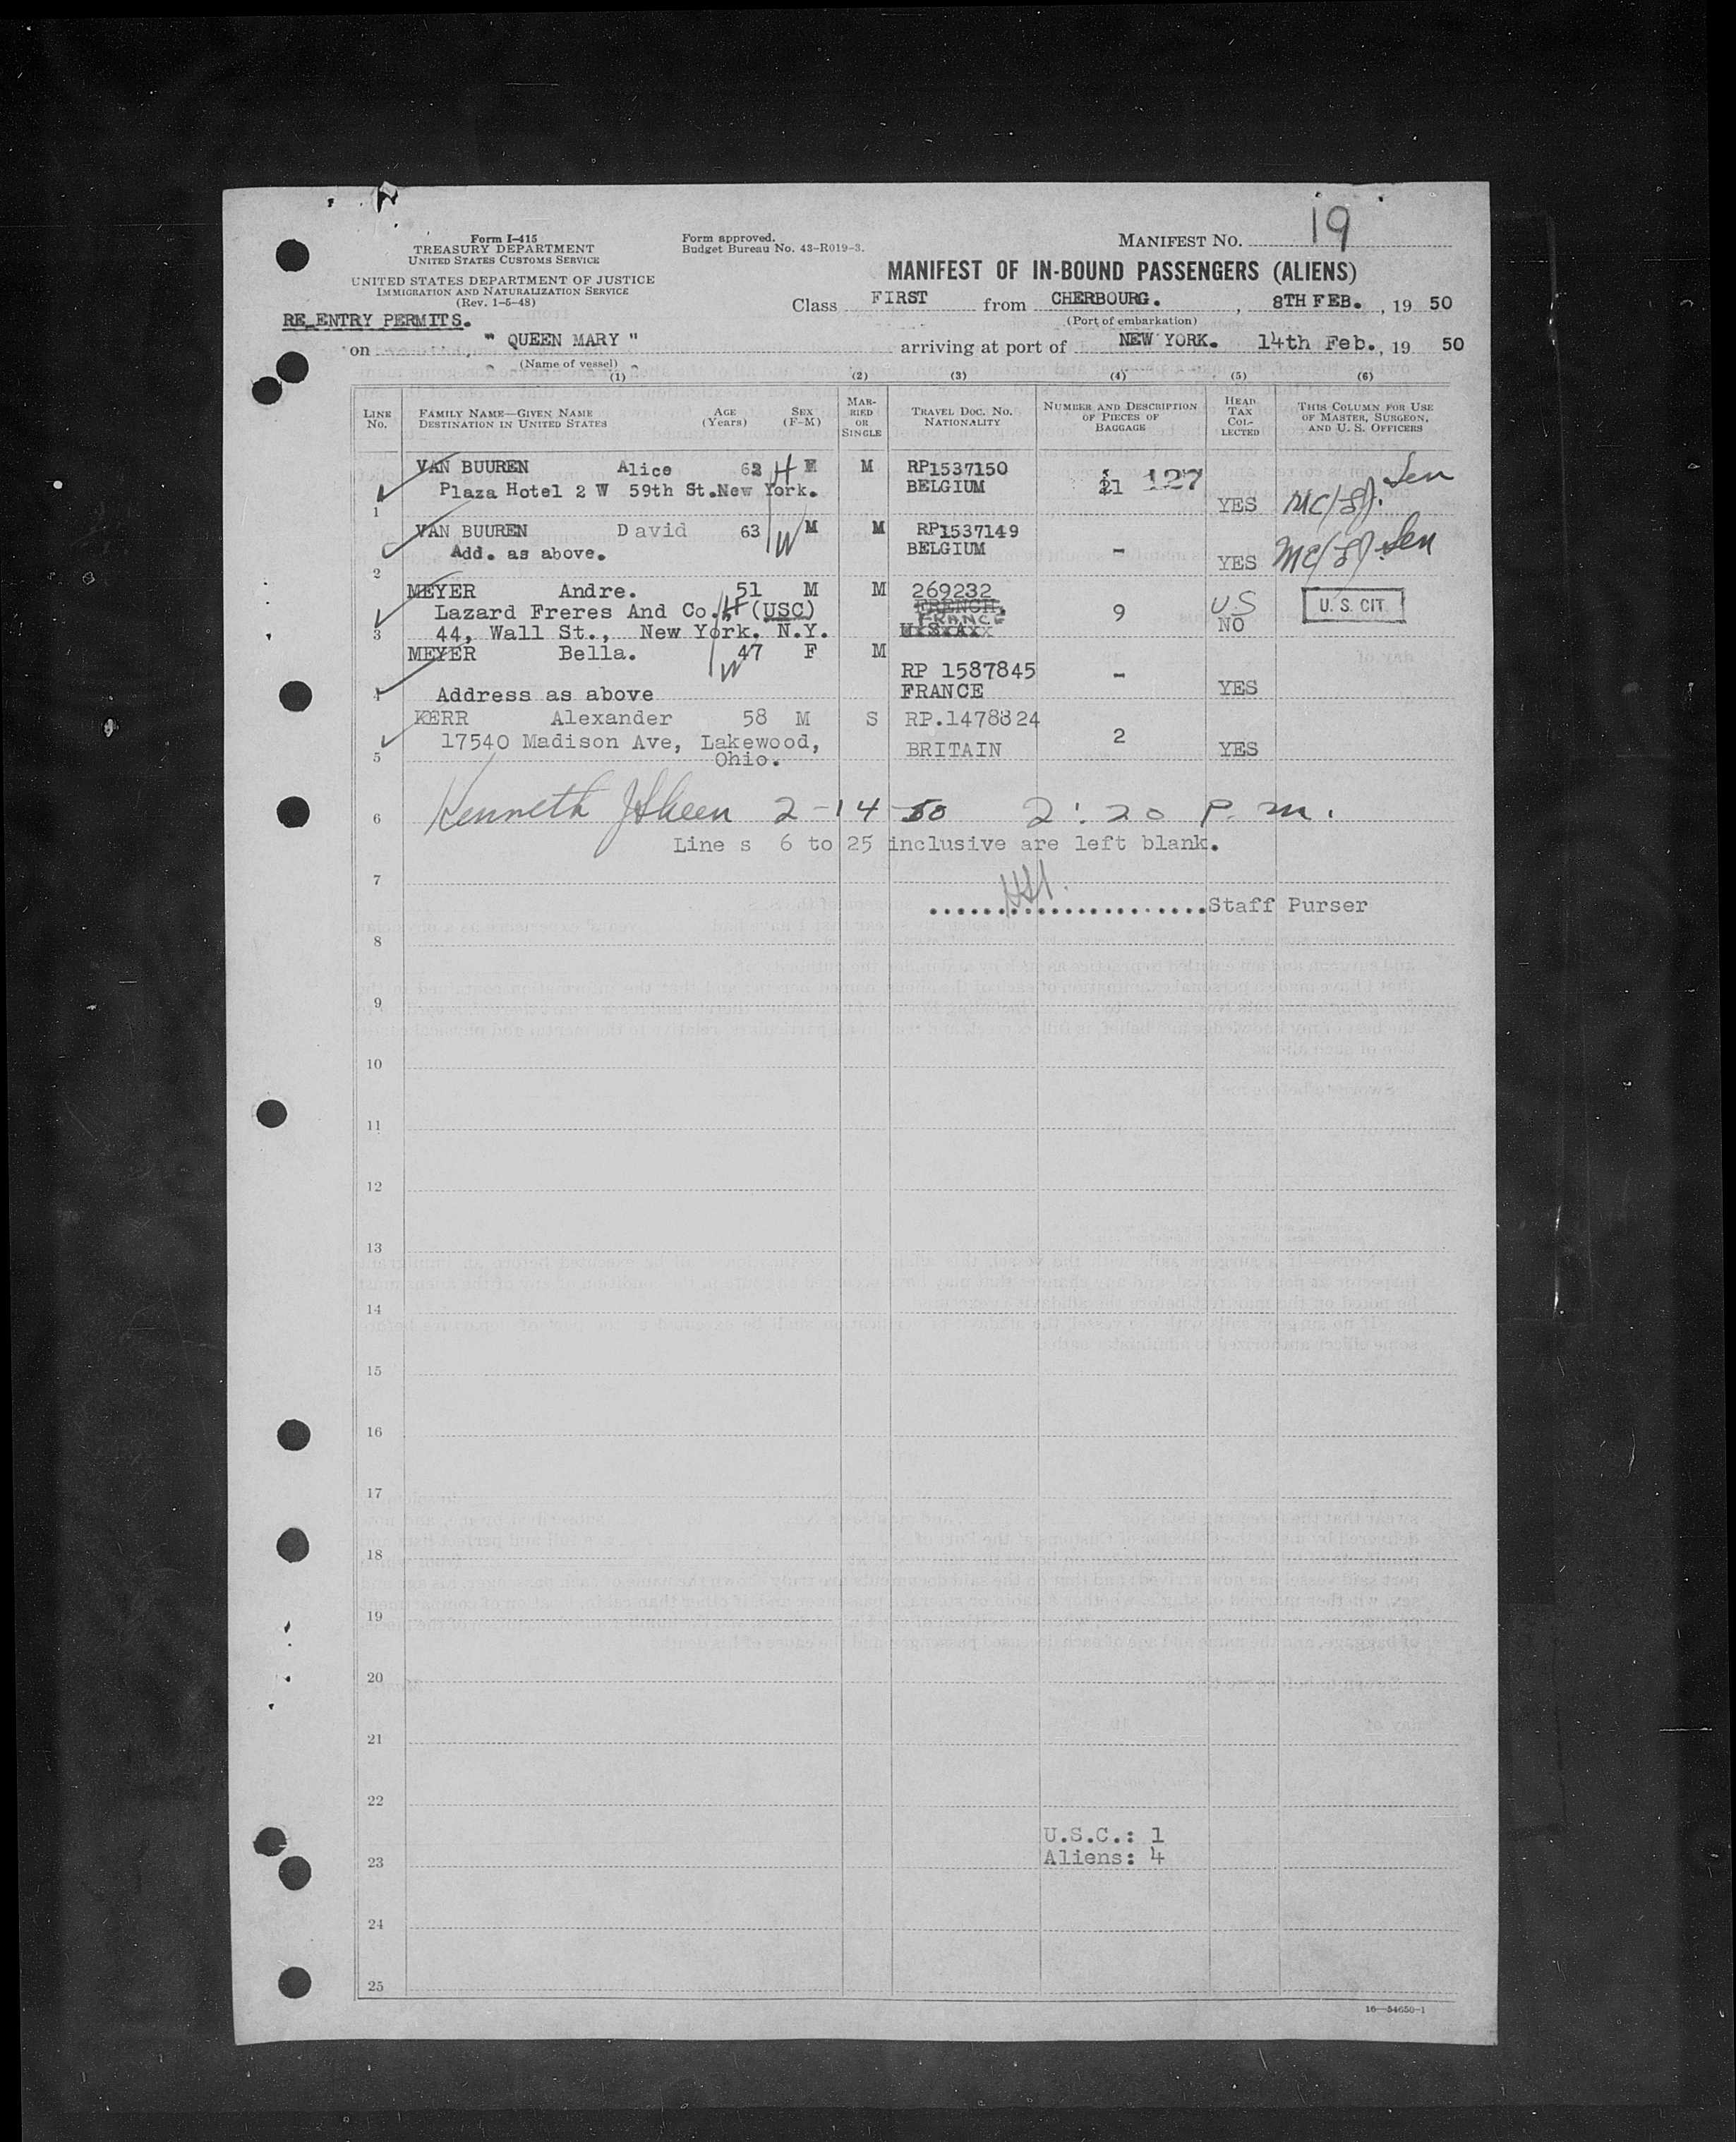 19
Form I-415
TREASURY DEPARTMENT
UNITED STATES CUSTOMS SERVICE
UNITED STATES DEPARTMENT OF JUSTICE
IMMIGRATION AND NATURALIZATION SERVICE
(Rev. 1-5-48)
Form approved.
Budget Bureau No. 43-R019-3.
MANIFEST NO.
MANIFEST OF IN-BOUND PASSENGERS (ALIENS)
Class FIRST from CHERBOURG. , 8TH FEB. , 19 50
(Port of embarkation)
RE_ENTRY PERMITS.
on " QUEEN MARY " arriving at port of NEW YORK. 14th Feb. , 19 50
(Name of vessel)
(1) (2) (3) (4) (5) (6)
LINE No. FAMILY NAME—GIVEN NAME DESTINATION IN UNITED STATES AGE (Years) SEX (F-M) MARRIED OR SINGLE TRAVEL DOC. NO. NATIONALITY NUMBER AND DESCRIPTION OF PIECES OF BAGGAGE HEAD TAX COLLECTED THIS COLUMN FOR USE OF MASTER, SURGEON, AND U. S. OFFICERS
VAN BUUREN Alice 62 H F M RP1537150 21 127
Plaza Hotel 2 W 59th St.New York. BELGIUM
1 YES
VAN BUUREN David 63 W M M RP1537149
Add. as above. BELGIUM -
2 YES
MEYER Andre. 51 M M 269232
Lazard Freres And Co. H (USC) FRENCH. FRANCE 9 US U. S. CIT.
3 44, Wall St., New York. N.Y. U.S.A. NO
MEYER Bella. 47 F M
W RP 1587845 -
4 Address as above FRANCE YES
KERR Alexander 58 M S RP.1478824
17540 Madison Ave, Lakewood, BRITAIN 2 YES
5 Ohio.
6 Kenneth J Skeen 2-14-50 2:20 P.m.
Line s 6 to 25 inclusive are left blank.
7
Staff Purser
8
9
10
11
12
13
14
15
16
17
18
19
20
21
22
U.S.C.: 1
23 Aliens: 4
24
25
16—54650-1